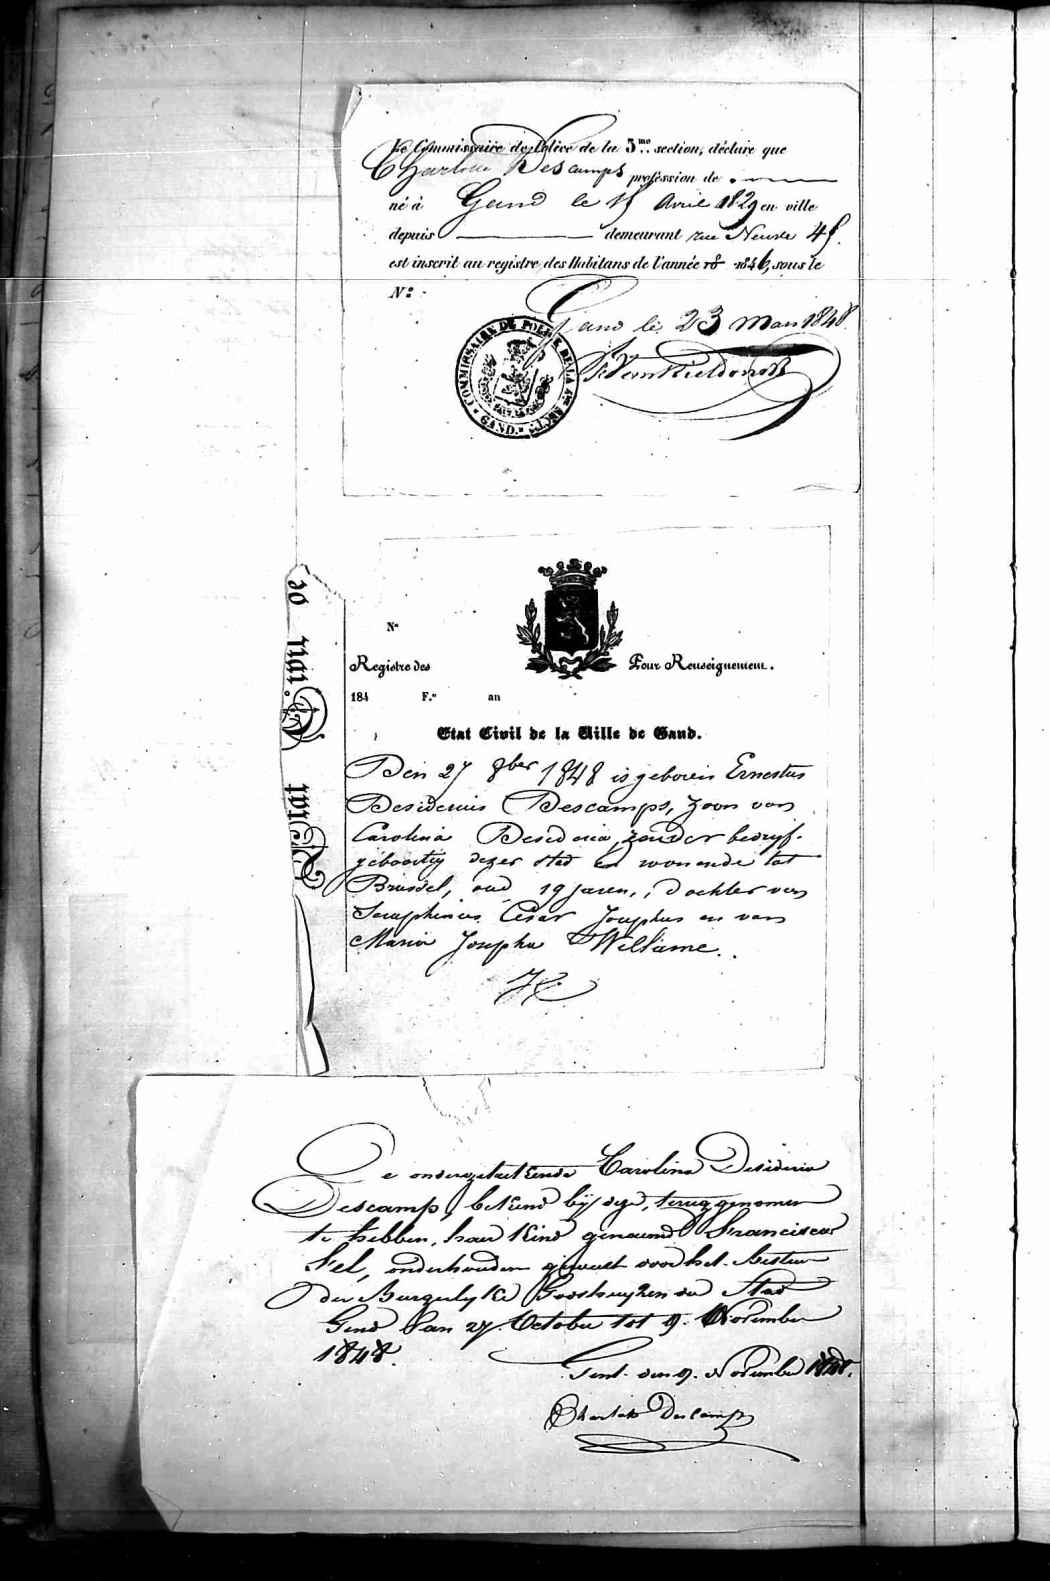 Le Commissaire de Police de la 5me. section, déclare que
Charlotte Descamps profession de
né à Gand le 15 Avril 1829 en ville
depuis demeurant rue Neuve 45.
est inscrit au registre des Habitans de l'année 18 1846, sous le
N°:
Gand le 23 Mars 1848.
COMMISSAIRE DE POLICE DE LA SECT.
GAND.
N°
Registre des Pour Renseignement.
184 F.° an
Etat Civil de la Ville de Gand.
Den 27 8ber 1848 is geboren Ernestus
Desiderius Descamps, zoon van
Carolina Desideria, zonder bedryf.
geboortig dezer stad en wonende tot
Brussel, oud 19 jaren, dochter van
Seraphinus César Josephus en van
Maria Josepha Willame.
De ondergeteekende Carolina Desideria
Descamps, bekend bij dezen, terug genomen
te hebben, haar kind genaamd Francisca
Fel, onderhouden geweest door het bestuur
der Burgerlyke Godshuyzen der Stad
Gend van 27 October tot 9. November
1848.
Gent. den 9. November 1848.
Charlotte Descamps